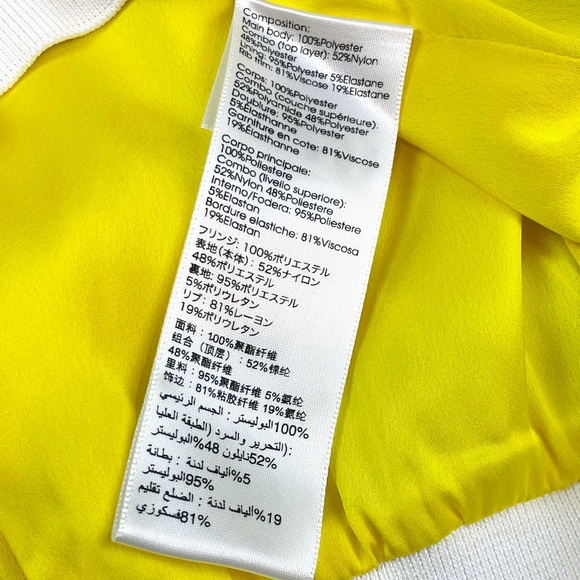 Composition:
Main body: 100%Polyester
Combo (top layer): 52%Nylon
48%Polyester
Lining: 95%Polyester 5%Elastane
Rib trim: 81%Viscose 19%Elastane
Corps: 100%Polyester
Combo (couche supérieure):
52%Polyamide 48%Polyester
Doublure: 95%Polyester
5%Élasthanne
Garniture en cote: 81%Viscose
19%Élasthanne
Corpo principale:
100%Poliestere
Combo (livello superiore):
52%Nylon 48%Poliestere
Interno/Fodera: 95%Poliestere
5%Elastan
Bordure elastiche: 81%Viscosa
19%Elastan
フリンジ: 100%ポリエステル
表地(本体): 52%ナイロン
48%ポリエステル
裏地: 95%ポリエステル
5%ポリウレタン
リブ: 81%レーヨン
19%ポリウレタン
面料: 100%聚酯纤维
组合 (顶层) : 52%锦纶
48%聚酯纤维
里料: 95%聚酯纤维 5%氨纶
饰边: 81%粘胶纤维 19%氨纶
100%البوليستر : الجسم الرئيسي
:(التحرير والسرد (الطبقة العليا
52%نايلون 48%البوليستر
5%ألياف لدنة : بطانة
95%البوليستر
19%ألياف لدنة : الضلع تقليم
81%فسكوزي